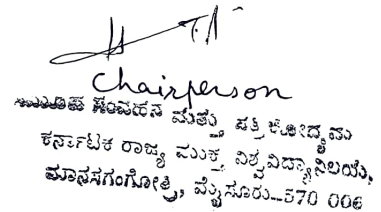 Chairperson
ಸಂವಹನ ಮತ್ತು ಪತ್ರಿಕೋದ್ಯಮ
ಕರ್ನಾಟಕ ರಾಜ್ಯ ಮುಕ್ತ ವಿಶ್ವವಿದ್ಯಾನಿಲಯ,
ಮಾನಸಗಂಗೋತ್ರಿ, ಮೈಸೂರು--570 006